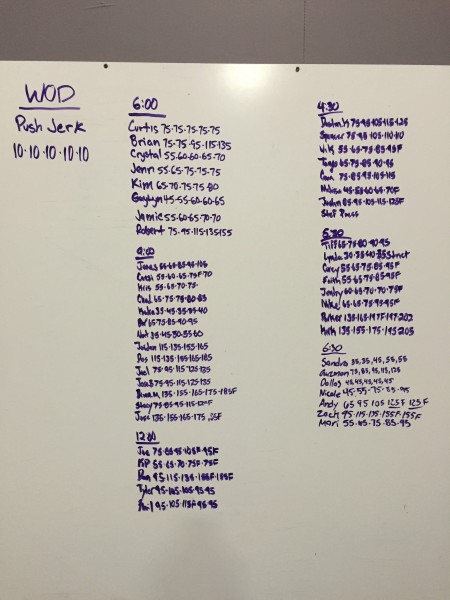 WOD
Push Jerk
10·10·10·10·10
6:00
Curtis 75·75·75·75·75
Brian 75·75·95·115·135
Crystal 55·60·60·65·70
Jenn 55·65·75·75·75
Kim 65·70·75·75·80
45·55·60·60·65
Jamie 55·60·65·70·70
Robert 75·95·115·135·155
9:00
Jonas
55·60·65·75F·70
Kris 55·65·70·75
65·75·75·80·85
35·45·35·35·40
65·75·85·90·95
Nat 35·45·50·55·60
Jordan 115·135·155·165
115·135·155·165·185
Joel 75·95·115·125·135
75·95·115·125·135
135·155·165·175·185F
75·85·95·115·120F
Jose 135·155·165·175
12:00
Joe 75·85·95·105F·95F
KP 55·65·70·75F·75F
95·115·135·155F·155F
Tyler 95·105·105·95·95
Phil 95·105·115F·95·95
4:30
75·95·105·115·125
Spencer 75·95·105·110·110
Vik 55·65·75·85·95F
65·75·85·90·95
75·85·95·105·115
Melissa 45·55·60·65·70F
85·95·105·115·125F
Stef Pass
5:30
Tiff 65·75·80·90·95
Lynda 30·35·40·35 Strict
Corey 55·65·75·85·95F
Faith 55·65·75·85·95F
60·65·70·70·75F
Nikel 65·65·75·95·95F
Parker 135·165·197F·197·202
135·155·175·195·205
6:30
Sandra 35,35,45,55,55
Guzman 75,85,95,115,125
Dallas 45,45,45,45,45
Nicole 45·55·75·85·95
Andy 65 95 105 125F 125F
Zack 95·115·135·155F·155F
Mari 55·65·75·85·95